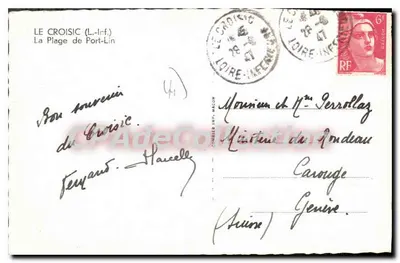 LE CROISIC (L.-Inf.)
La Plage de Port-Lin
LE CROISIC
LOIRE-INFRE
LE CROISIC
LOIRE-INFRE
6F
RF
Bon souvenir
du Croisic.
Fernand. Marcelle
Monsieur et Mme Perrollaz
du Rondeau
Carouge
Genève
(Suisse)